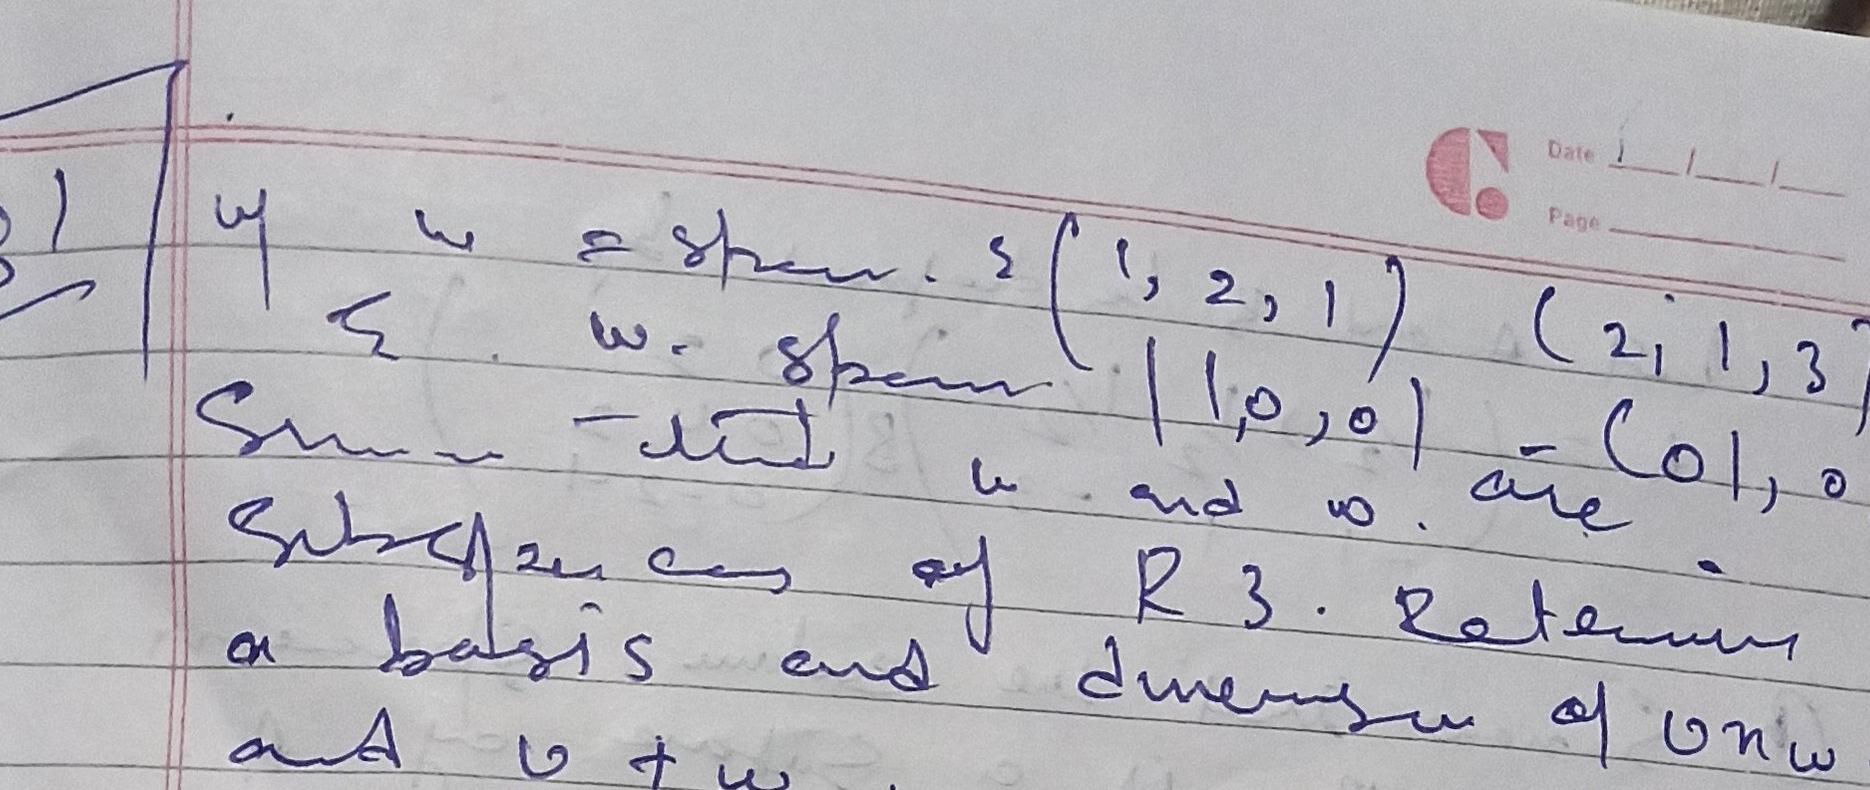 Date
Page
1
If w = span. { (1, 2, 1) (2, 1, 3)
& w. span (1,0,0) - (01, 0
Show that w and w. are
Subspaces of R3. Determine
a basis and dimension of U∩W
and U + W.